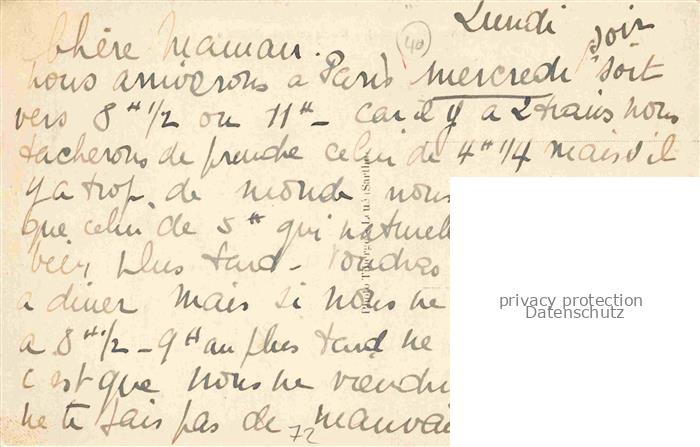 Lundi soir
Chère Maman. 40
nous arriverons a Paris mercredi soit
vers 8H 1/2 ou 11H - car il y a 2 trains nous
tacherons de prendre celui de 4H 1/4 mais s'il
y a trop de monde nous
que celui de 5H qui naturell
bien plus tard -
a diner mais si nous ne
a 8H 1/2 - 9H au plus tard ne
c'est que nous ne viendr
ne te fais pas de mauvai
72
privacy protection
Datenschutz